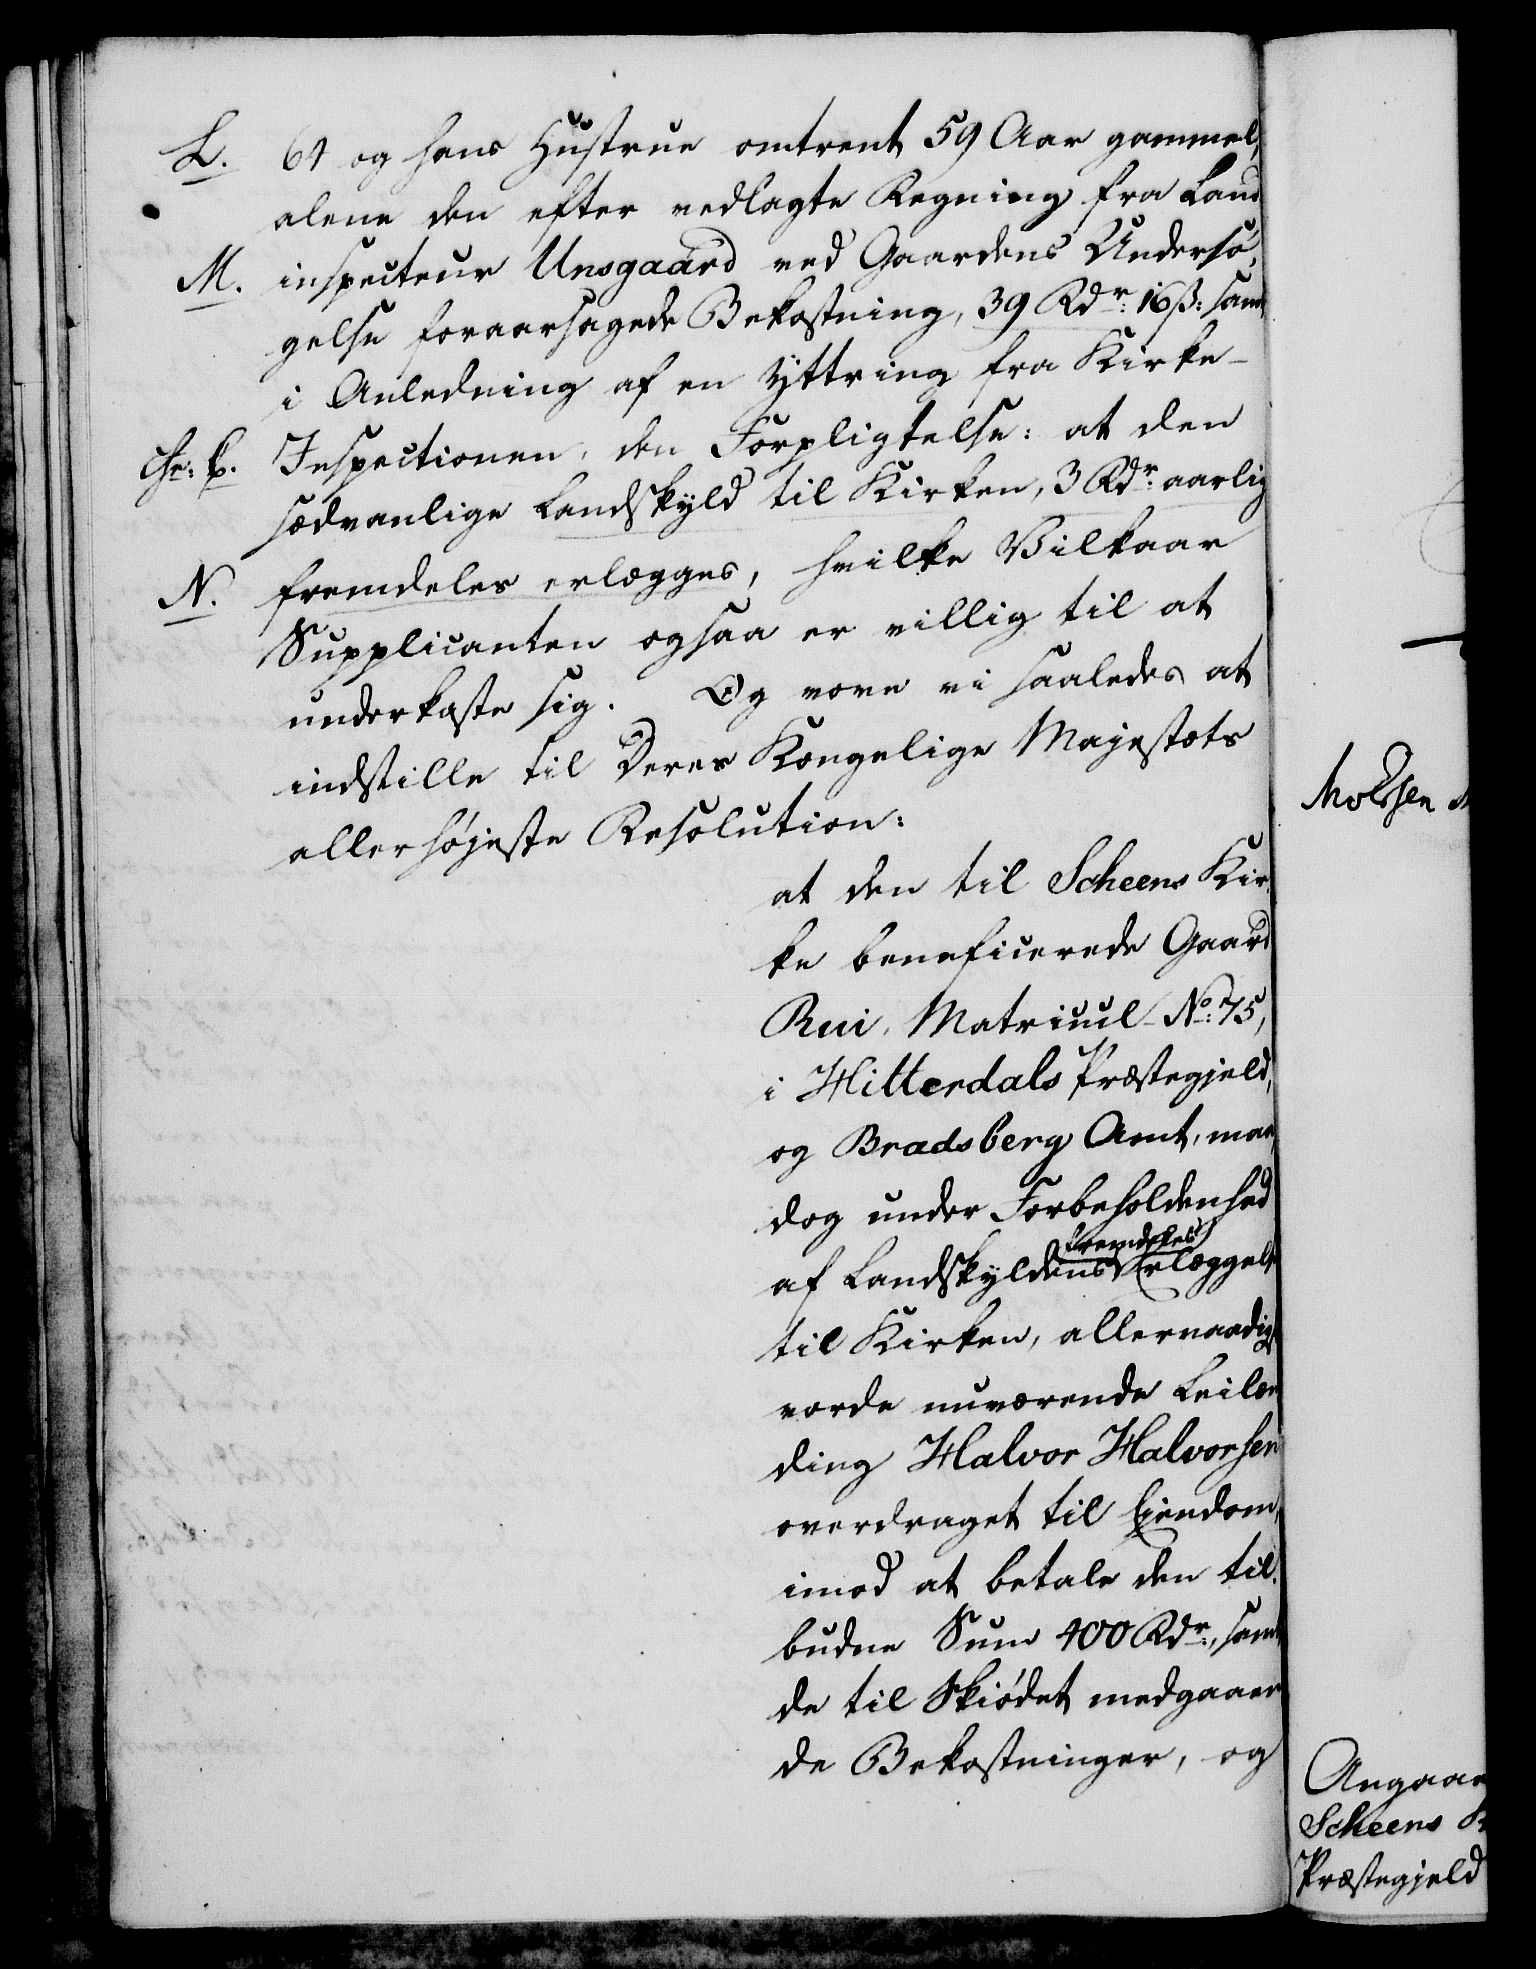 L. 61 og hans Hustrue omtrent 59 Aar gammel,
alene den efter vedlagte Regning fra Land
M. inspecteur Unsgaard ved Gaardens Undersø,
gelse foraarsagede Bekostning, 39 Rdr: 16 ß: samt
i Anledning af en Yttring fra Kirke-
Inspectionen, den Forpligtelse: at den
sædvanlige Landskyld til Kirken, 3 Rdr: aarlig
N. fremdeles erlægges, hvilke Vilkaar
Supplicanten ogsaa er villig til at
underkaste sig. Og vove vi saaledes at
indstille til Deres Kongelige Majestæts
allerhøjeste Resolution:
at den til Scheens Kir,
ke beneficerede Gaard
Rui, Matricul No: 75,
i Hitterdals Præstegjeld,
og Bradsberg Amt, maae,
dog under Forbeholdenhed
af Landskyldens fremdeles Erlæggelse
til Kirken, allernaadigst
vorde nuværende Leilæn
ding Halvor Halvorsen
overdraget til Eiendom,
imod at betale den til,
budne Sum 400 Rdr:, samt
de til Skiødet medgaaen
de Bekostninger, og
Angaae
Scheens K
Præstegjeld